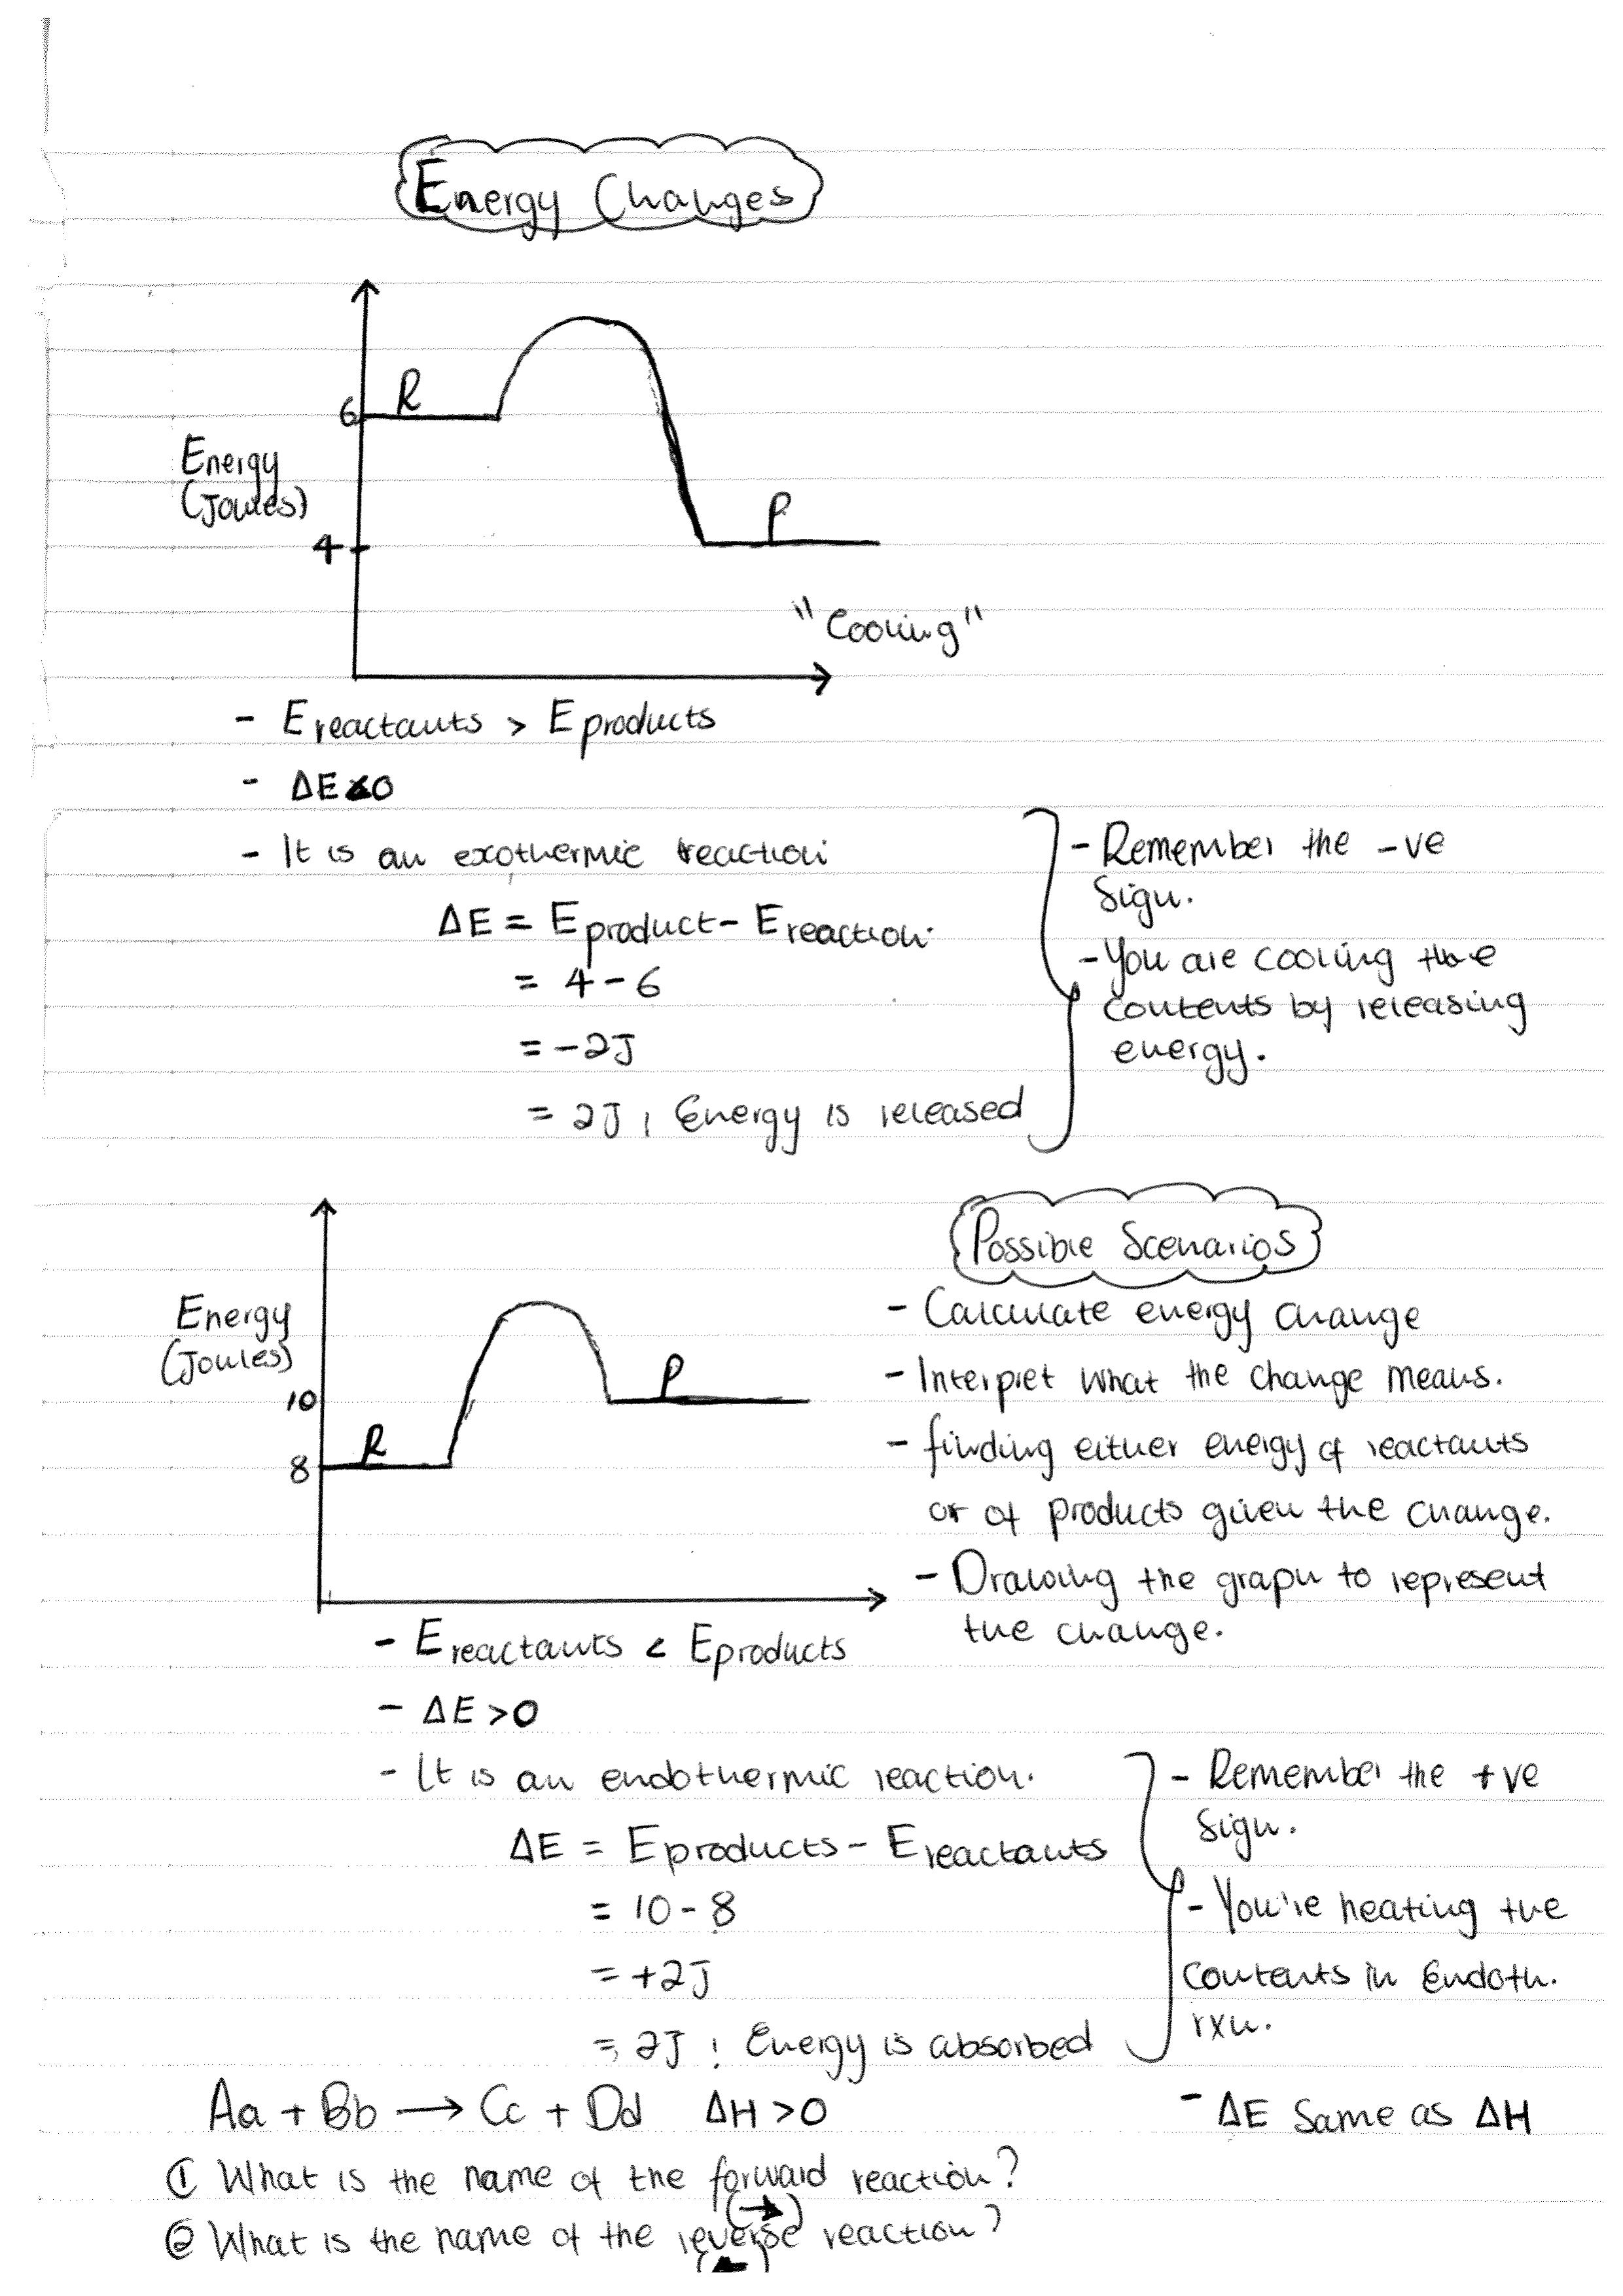 Energy Changes
R
6
Energy
(Joules)
P
4
"Cooling"
- Ereactants > Eproducts
- ΔE<0
- It is an exothermic reaction
ΔE = Eproduct - Ereaction.
= 4 - 6
= -2J
= 2J ; Energy is released
- Remember the -ve
sign.
- You are cooling the
contents by releasing
energy.
Energy
(Joules)
P
10
R
8
Possible Scenarios
- Calculate energy change
- Interpret what the change means.
- finding either energy of reactants
or of products given the change.
- Drawing the graph to represent
the change.
- Ereactants < Eproducts
- ΔE >0
- It is an endothermic reaction.
ΔE = Eproducts - Ereactants
= 10 - 8
= +2J
= 2J ; Energy is absorbed
- Remember the +ve
sign.
- You're heating the
contents in Endoth.
rxn.
Aa + Bb → Cc + Dd ΔH >0
- ΔE same as ΔH
① What is the name of the forward reaction?
(→)
② What is the name of the reverse reaction?
(←)